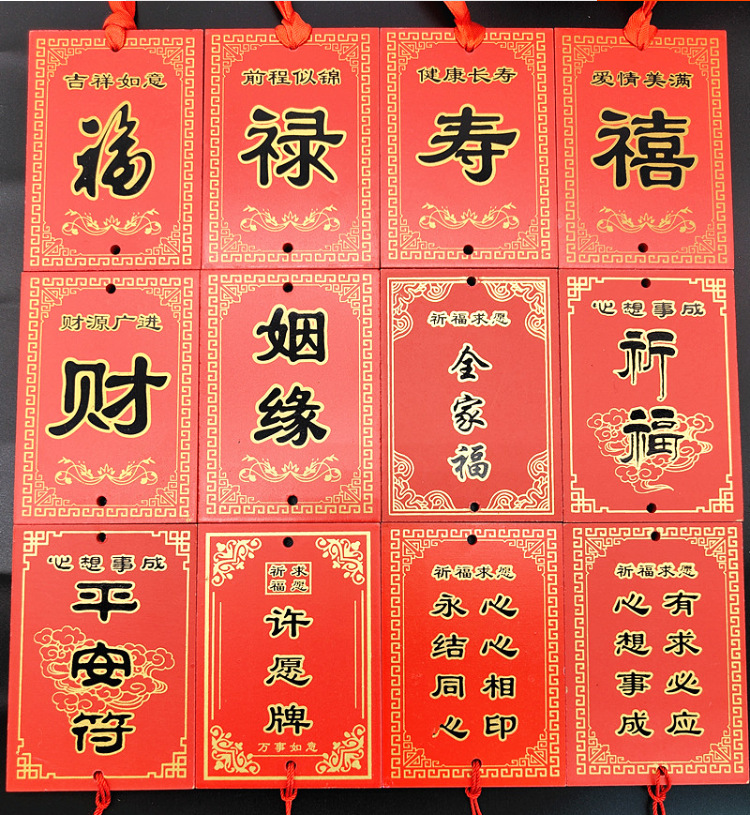 吉祥如意
福
前程似锦
禄
健康长寿
寿
爱情美满
禧
财源广进
财
姻
缘
祈福求愿
全
家
福
心想事成
祈
福
心想事成
平
安
符
祈求
福愿
许
愿
牌
万事如意
祈福求愿
心心相印
永结同心
祈福求愿
有求必应
心想事成